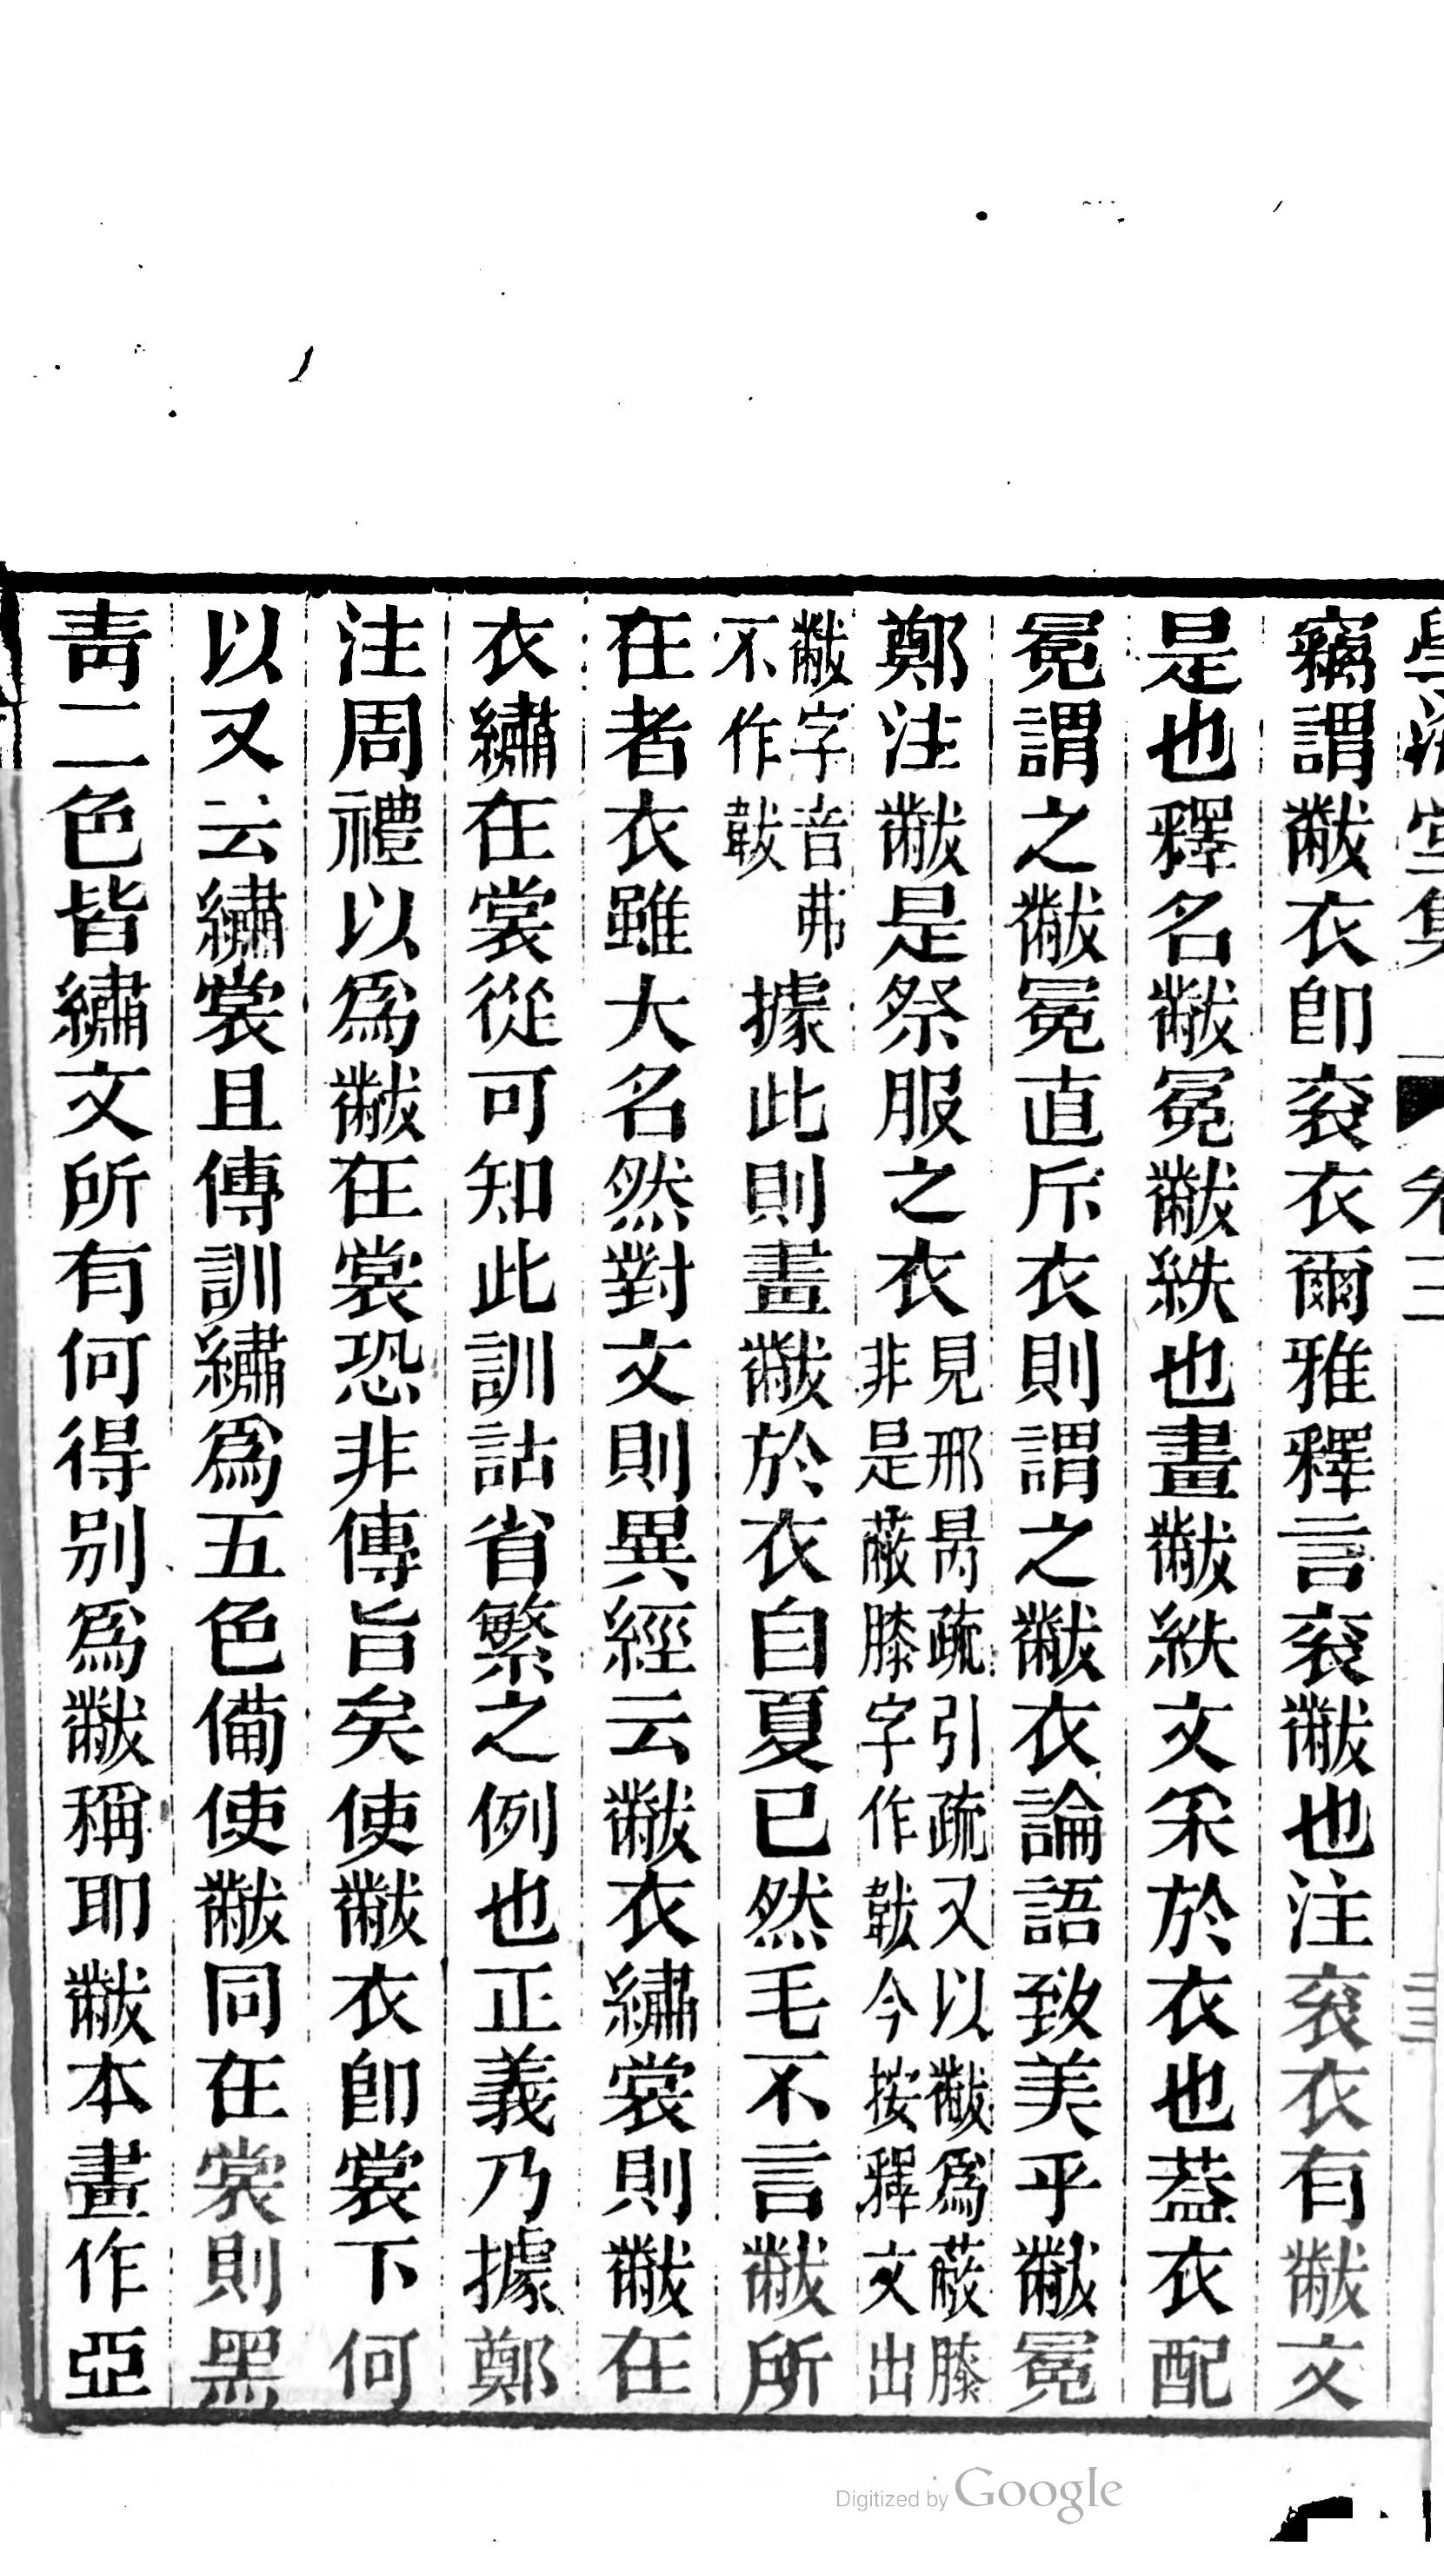 學海堂集 卷三
竊謂黻衣卽袞衣爾雅釋言袞黻也注袞衣有黻文
是也釋名黻冕黻紩也畫黻紩文采於衣也蓋衣配
冕謂之黻冕直斥衣則謂之黻衣論語致美乎黻冕
鄭注黻是祭服之衣見邢昺疏引疏又以黻爲蔽膝非是蔽膝字作韍今按釋文出
黻字音弗不作韍據此則畫黻於衣自夏已然毛不言黻所
在者衣雖大名然對文則異經云黻衣繡裳則黻在
衣繡在裳從可知此訓詁省繁之例也正義乃據鄭
注周禮以爲黻在裳恐非傳旨矣使黻衣卽裳下何
以又云繡裳且傳訓繡爲五色備使黻同在裳則黑
靑二色皆繡文所有何得別爲黻稱耶黻本畫作亞
Digitized by Google